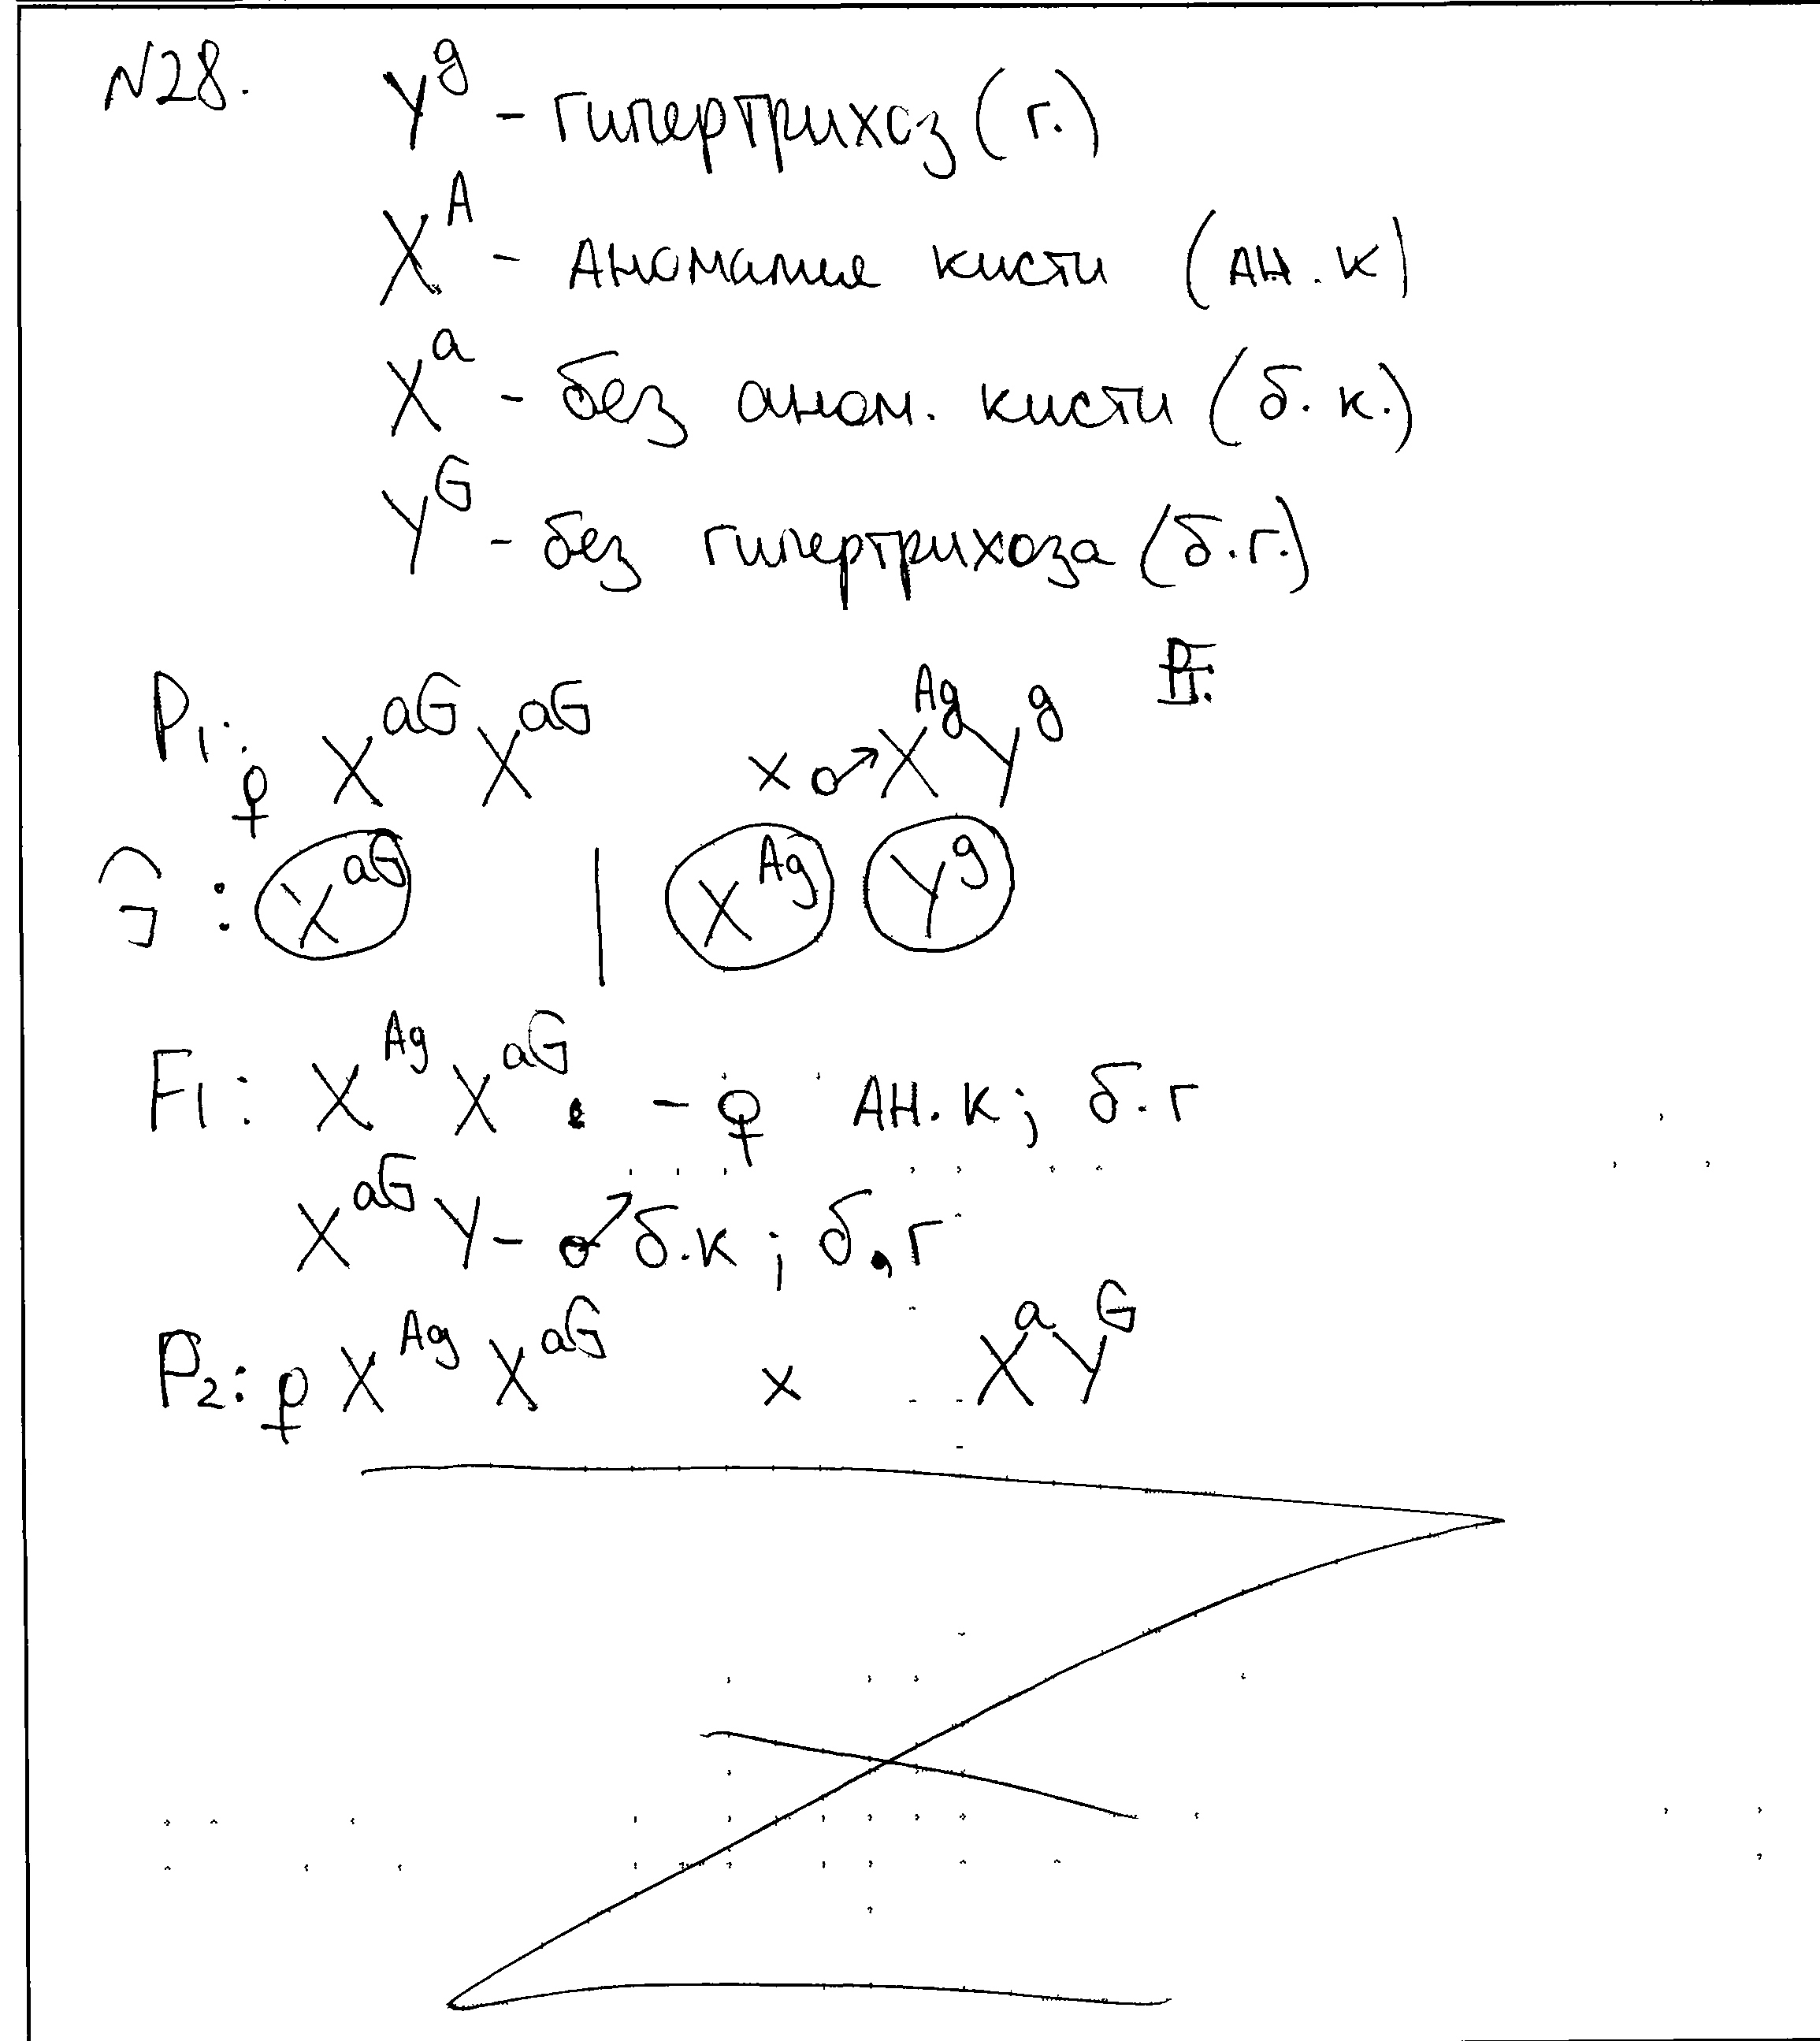 N28. Y^g - гипертрихоз (г.)
X^A - Аномалия кисти (АН. К)
X^a - без аном. кисти (б. к.)
Y^G - без гипертрихоза (б.г.)
P1: ♀ X^aG X^aG × ♂ X^Ag Y^g
G: X^aG | X^Ag Y^g
F1: X^Ag X^aG - ♀ АН. К; б.г
X^aG Y - ♂ б.к; б.г
P2: ♀ X^Ag X^aG × X^a Y^G